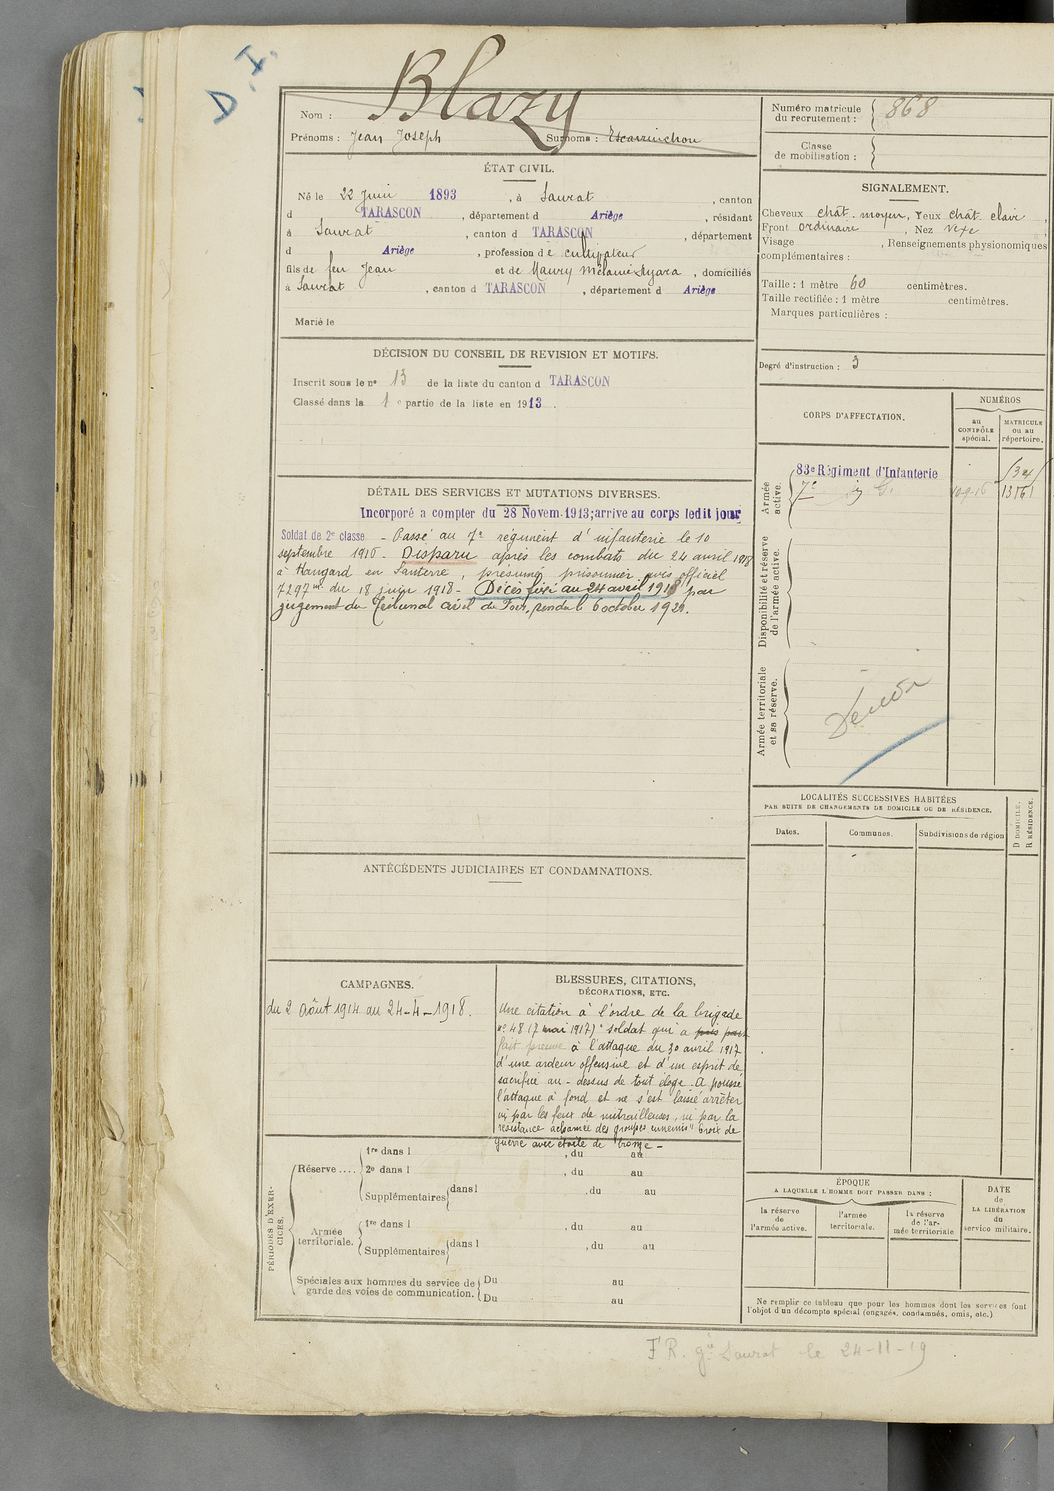 D. I.
Blazy
Nom :
Prénoms : Jean Joseph Surnoms : Escarrinchou
Numéro matricule
du recrutement : 868
Classe
de mobilisation :
ÉTAT CIVIL.
Né le 22 Juin 1893, à Saurat, canton
d TARASCON, département d Ariège, résidant
à Saurat, canton d TARASCON, département
d Ariège, profession de cultivateur
fils de feu Jean et de Maury Mélanie, domiciliés
à Saurat, canton d TARASCON, département d Ariège
Marié le
SIGNALEMENT.
Cheveux chât. moyen, Yeux chât. clair,
Front ordinaire, Nez vexe
Visage , Renseignements physionomiques
complémentaires :
Taille : 1 mètre 60 centimètres.
Taille rectifiée : 1 mètre centimètres.
Marques particulières :
Degré d'instruction : 3
DÉCISION DU CONSEIL DE REVISION ET MOTIFS.
Inscrit sous le nº 13 de la liste du canton d TARASCON
Classé dans la 1e partie de la liste en 1913.
CORPS D'AFFECTATION.
NUMÉROS
au
CONTRÔLE
spécial.
MATRICULE
ou au
répertoire.
Armée
active.
83e Régiment d'Infanterie
7e
10-9-16
Disponibilité et réserve
de l'armée active.
Armée territoriale
et sa réserve.
DÉTAIL DES SERVICES ET MUTATIONS DIVERSES.
Incorporé a compter du 28 Novem. 1913; arrive au corps ledit jour
Soldat de 2e classe - Passé au 7e régiment d'infanterie le 10
septembre 1916. Disparu après les combats du 24 avril 1918
à Hangard en Santerre, présumé prisonnier avis officiel
7297 du 18 juin 1918 - Décès fixé au 24 avril 1918 par
jugement du Tribunal civil de Foix, rendu le 6 octobre 1920.
LOCALITÉS SUCCESSIVES HABITÉES
PAR SUITE DE CHANGEMENTS DE DOMICILE OU DE RÉSIDENCE.
Dates.
Communes.
Subdivisions de région
D DOMICILE.
R RÉSIDENCE.
ANTÉCÉDENTS JUDICIAIRES ET CONDAMNATIONS.
CAMPAGNES.
du 2 Août 1914 au 24-4-1918.
BLESSURES, CITATIONS,
DÉCORATIONS, ETC.
Une citation à l'ordre de la brigade
nº 48 (7 mai 1917) "soldat qui a pris part
fait preuve à l'attaque du 30 avril 1917
d'une ardeur offensive et d'un esprit de
sacrifice au-dessus de tout éloge. A poussé
l'attaque à fond et ne s'est laissé arrêter
ni par les feux de mitrailleuses, ni par la
résistance acharnée des groupes ennemis" Croix de
guerre avec étoile de bronze -
PÉRIODES D'EXER-
CICES.
Réserve ....
1re dans l , du au
2e dans l , du au
Supplémentaires dans l , du au
Armée
territoriale.
1re dans l , du au
Supplémentaires dans l , du au
Spéciales aux hommes du service de
garde des voies de communication.
Du au
Du au
ÉPOQUE
A LAQUELLE L'HOMME DOIT PASSER DANS :
la réserve
de
l'armée active.
l'armée
territoriale.
la réserve
de l'ar-
mée territoriale
DATE
de
LA LIBÉRATION
du
service militaire.
Ne remplir ce tableau que pour les hommes dont les services font
l'objet d'un décompte spécial (engagés, condamnés, omis, etc.)
F R. Saurat le 24-11-19